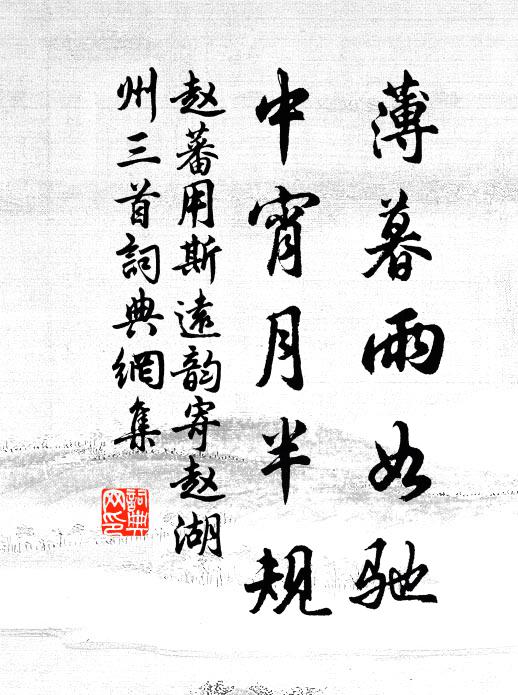 薄暮雨如馳
中宵月半規
赵蕃用斯遠韵寄赵湖
州三首詞典網集
詞典
网印